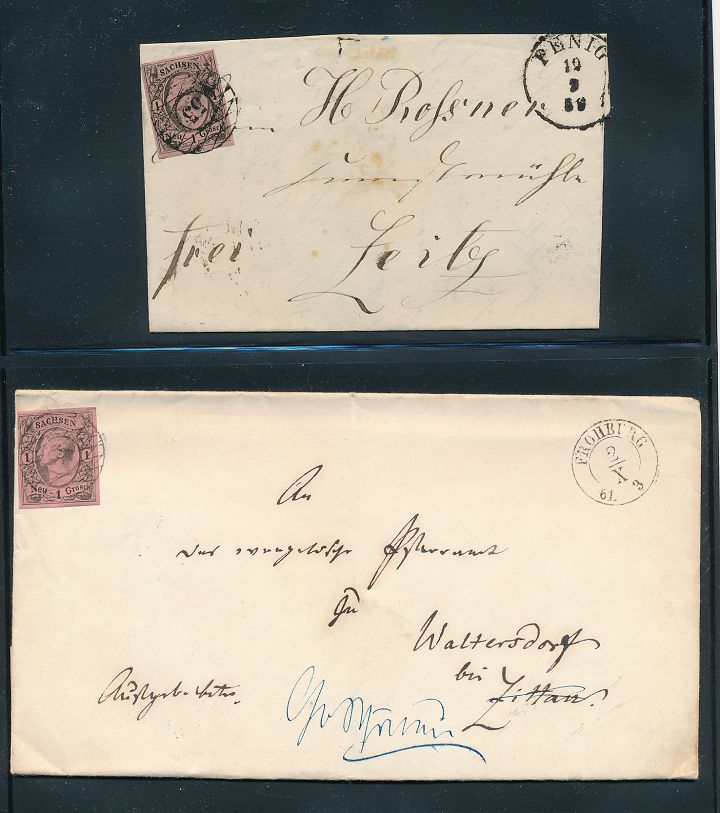 SACHSEN
1 1
Neu - 1 Grosch
PENIG
19
59
H Rossner
mühle
frei Zeitz
SACHSEN
1 1
Neu - 1 Grosch
FROHBURG
61. 3
An
das evangelische Pfarramt
zu
Waltersdorf
bei
Zittau.